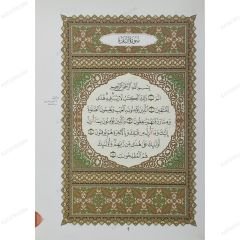 سُورَةُ الْبَقَرَةِ
بِسْمِ اللَّهِ الرَّحْمَٰنِ الرَّحِيمِ
الٓمٓ ۝ ذَٰلِكَ الْكِتَابُ لَا رَيْبَ فِيهِ هُدًى
لِّلْمُتَّقِينَ ۝ الَّذِينَ يُؤْمِنُونَ بِالْغَيْبِ وَيُقِيمُونَ الصَّلَاةَ
وَمِمَّا رَزَقْنَاهُمْ يُنفِقُونَ ۝ وَالَّذِينَ يُؤْمِنُونَ بِمَا أُنزِلَ
إِلَيْكَ وَمَا أُنزِلَ مِن قَبْلِكَ وَبِالْآخِرَةِ هُمْ يُوقِنُونَ ۝
أُولَٰئِكَ عَلَىٰ هُدًى مِّن رَّبِّهِمْ وَأُولَٰئِكَ
هُمُ الْمُفْلِحُونَ ۝